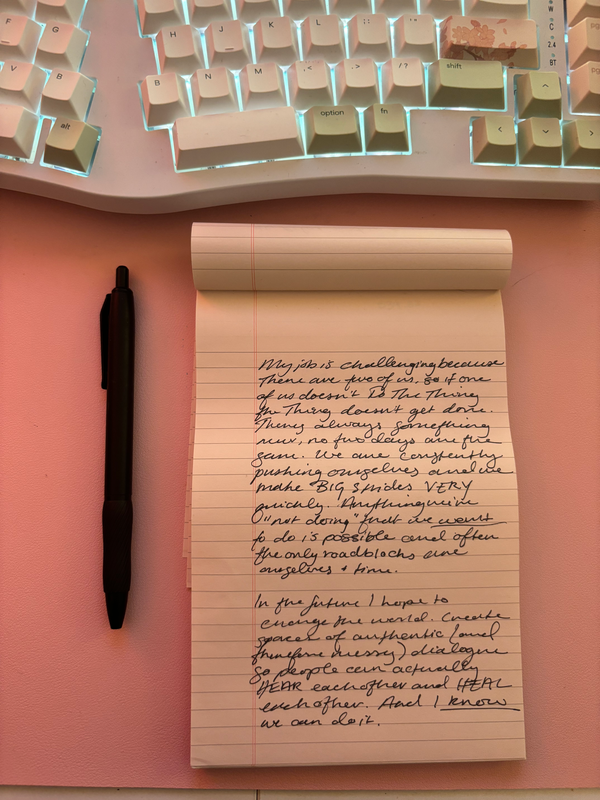 W
C
2.4
BT
F G H J K L ;: '"
V B B N M ,< .> /? shift ^
alt option fn < v >
pg
pg
My job is challenging because
there are two of us. so if one
of us doesn't do The Thing
the Thing doesn't get done.
There always something
new, no two days are the
same. We are constantly
pushing ourselves and we
make BIG strides VERY
quickly. Anything we're
"not doing" that we want
to do is possible and often
the only roadblocks are
ourselves + time.
In the future I hope to
change the world. Create
spaces of authentic (and
therefore messy) dialogue
so people can actually
HEAR each other and HEAL
each other. And I know
we can do it.